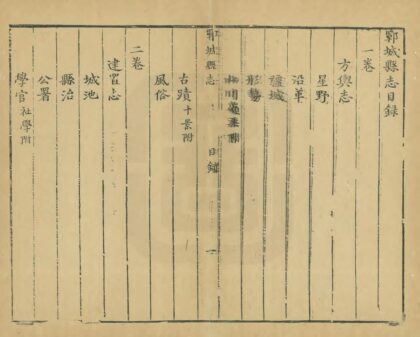 鄆城縣志目錄
一卷
方輿志
星野
沿革
疆域
形勢
山川
鄆城縣志 目錄 一
古蹟十景附
風俗
二卷
建置志
城池
縣治
公署
學官社學附